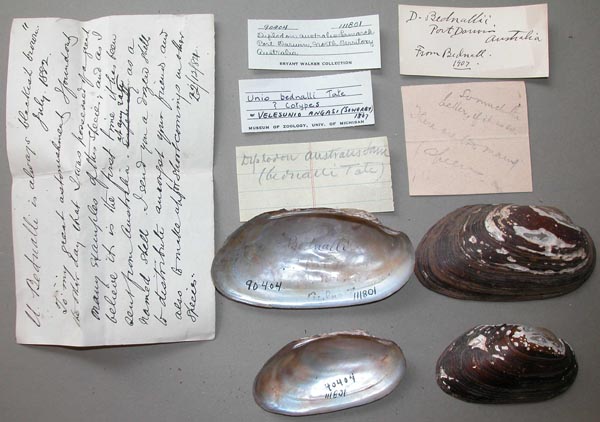 U. Bednalli is always "bleakest brown"
July 1892
To my great astonishment I found out
the other day that I was possessed of a great
many examples of this species; and as I
believe it is the first time it has been
sent from Australia as a
named shell I send you a dozen shells
to distribute amongst your friends and
also to make up for shortcomings in other
species.
90404 111801
Diplodon australis Lamarck
Port Darwin, North Territory
Australia
BRYANT WALKER COLLECTION
Unio bednalli Tate
? Cotypes
= VELESUNIO ANGASI (SOWERBY,
1867
MUSEUM OF ZOOLOGY, UNIV. OF MICHIGAN
Diplodon australis Lam
(bednalli Tate)
D. Bednallii
Port Darwin
Australia
From Bednall.
1907.
better
many
Species
Bednalli
90404
111801
90404
111801